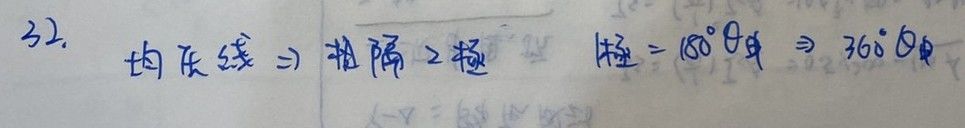 32. 均压线 ⇒ 相隔2極 1極 = 180°θ电 ⇒ 360°θ电